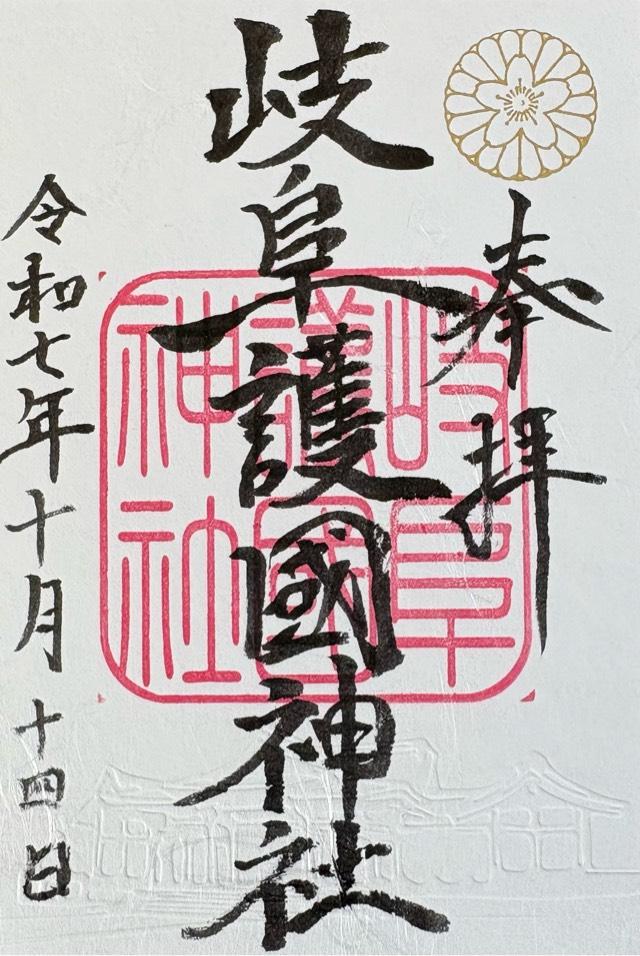 奉拝
岐阜護國神社
岐阜
護國
神社
令和七年十月十四日